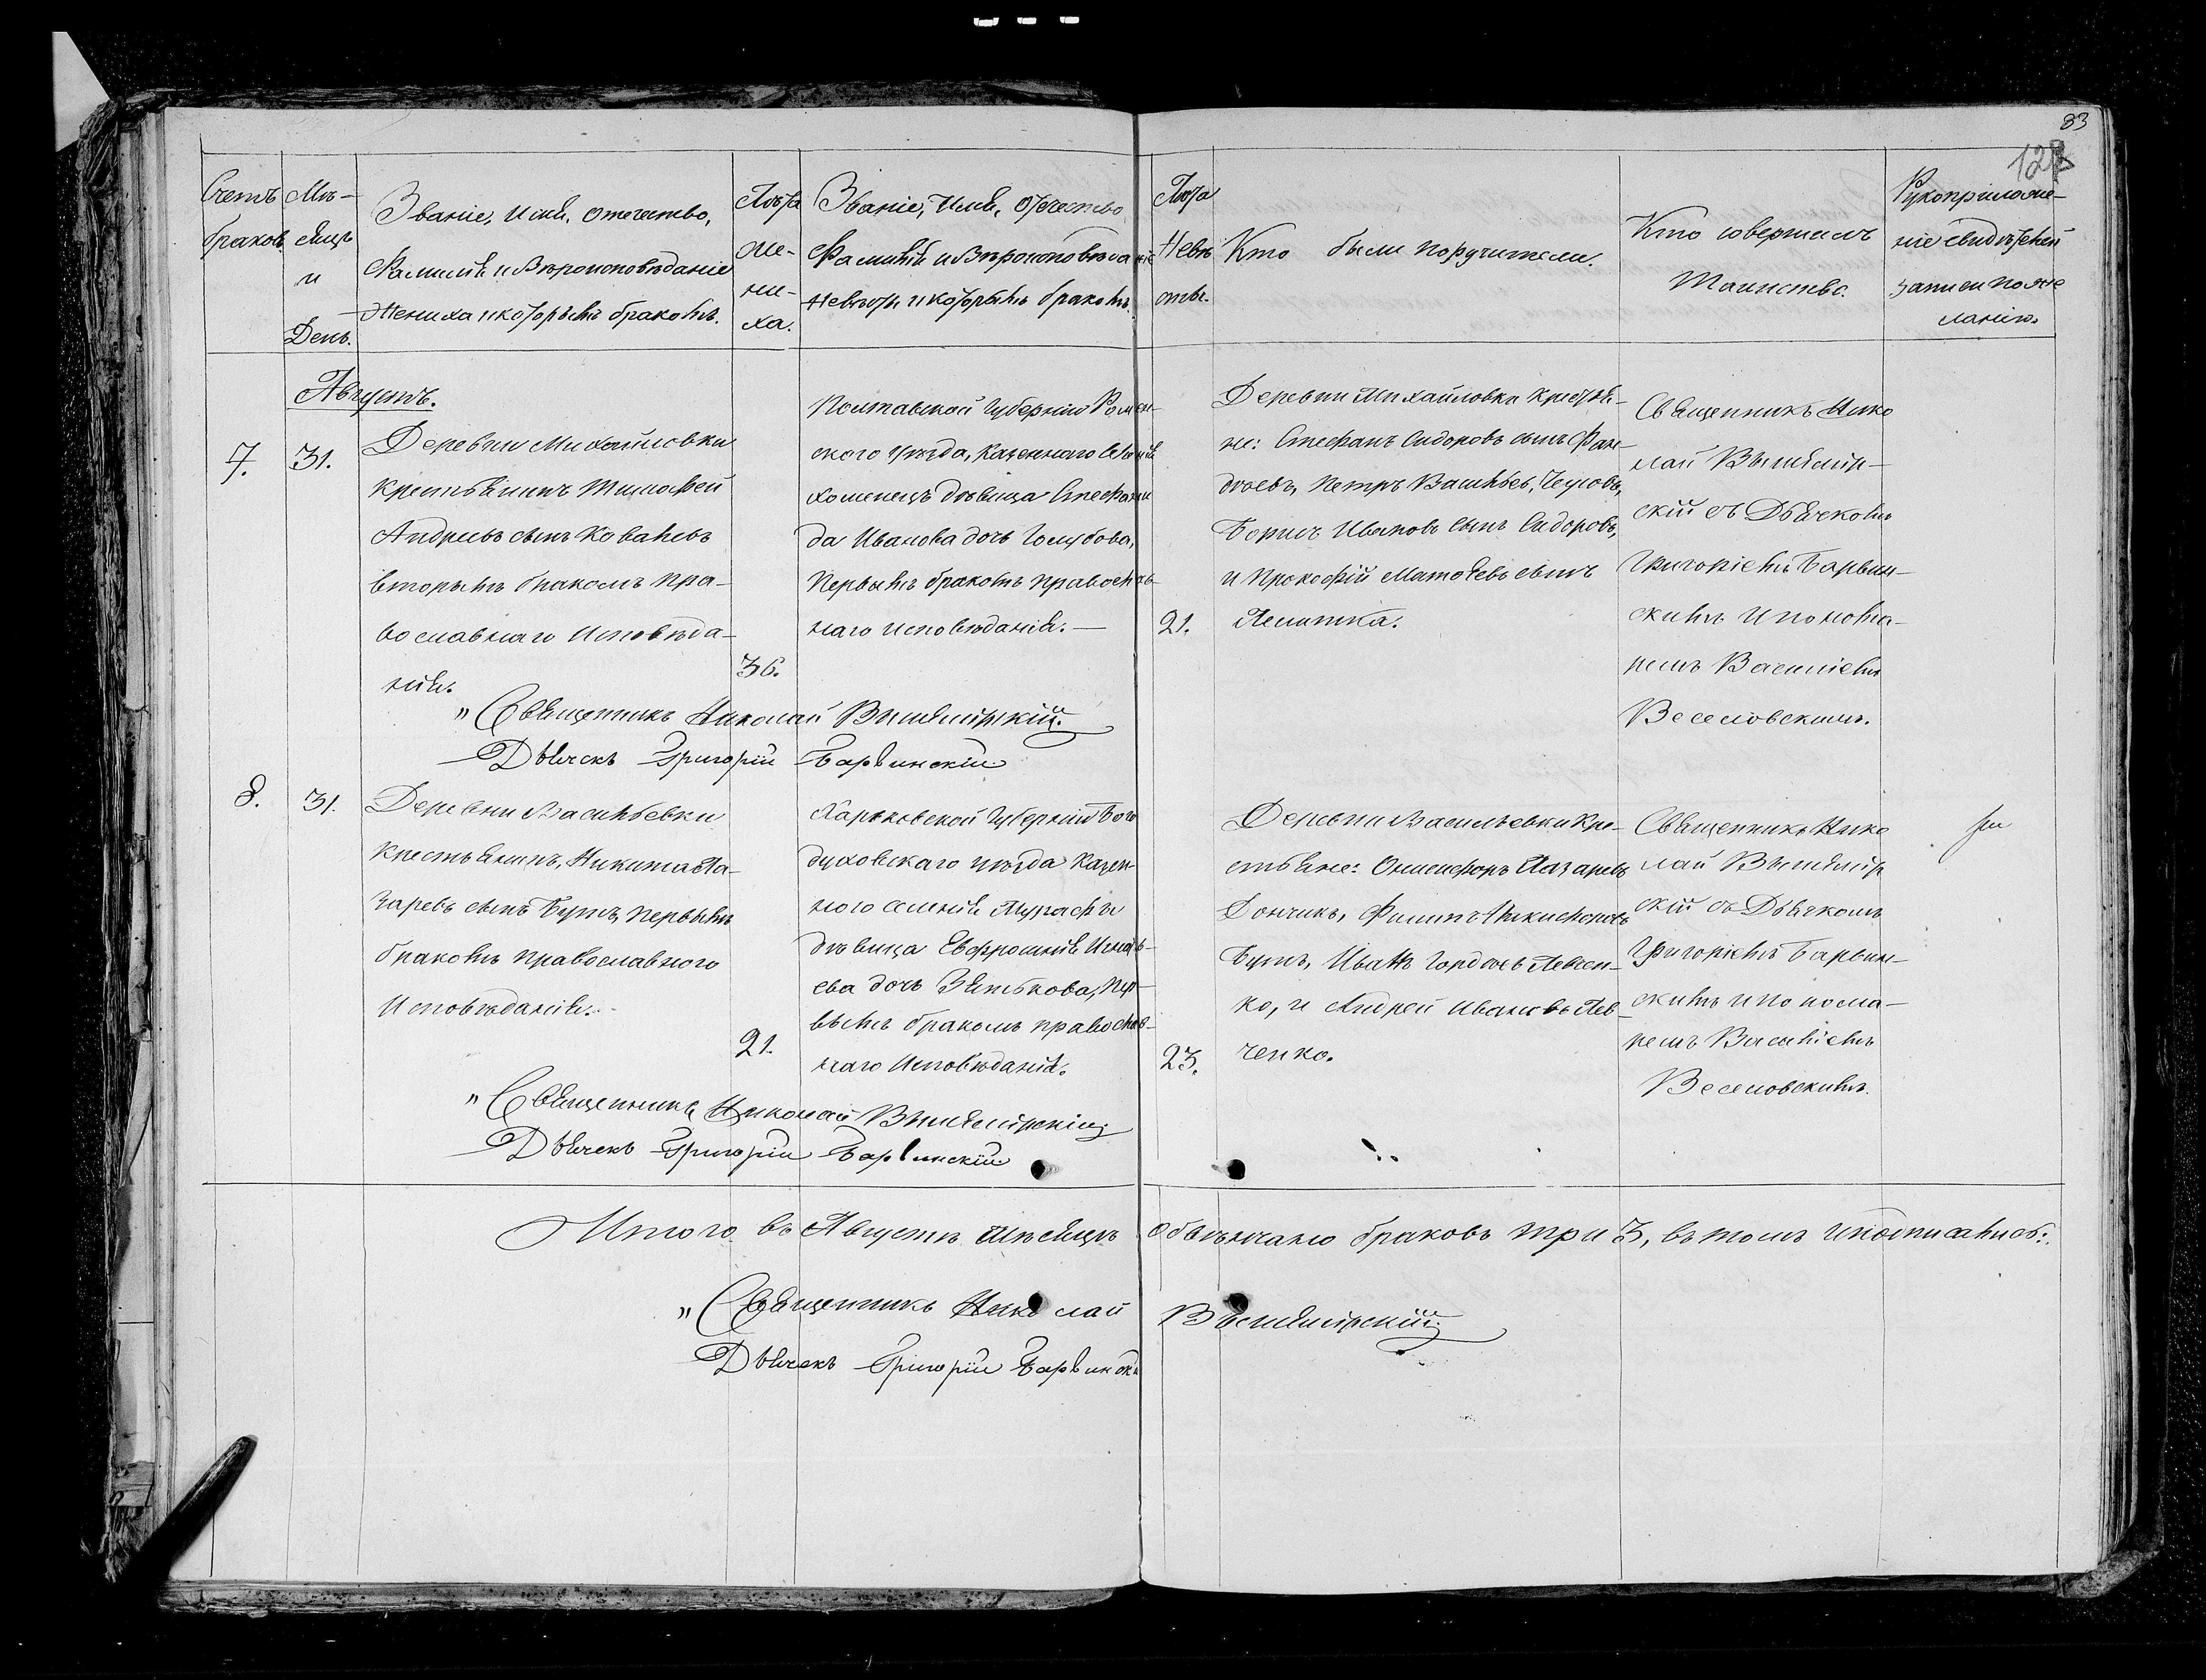 83
127
Счетъ браковъ.
Мѣ-
сяцъ
и
День.
Званіе, Имя, отечество,
Фамилія и Вѣроисповѣданіе
Жениха и которымъ бракомъ.
Лѣта
же-
ни-
ха.
Званіе, Имя, отечество
Фамилія и Вѣроисповѣданіе
Невѣсты и которымъ бракомъ.
Лѣта
Невѣ
сты.
Кто были поручители.
Кто совершалъ
Таинство.
Рукоприложе-
ніе свидѣтелей
записи по же
ланію.
Августъ.
7.
31.
Деревни Михайловки
крестьянинъ Тимофей
Андреевъ сынъ Ковалевъ
вторымъ бракомъ пра-
вославнаго Исповѣда-
нія.
36.
Полтавской Губерніи Ромен-
ского уѣзда, Казеннаго Селенія
хоменецъ дѣвица Стефани
да Иванова дочь Голубова,
Первымъ бракомъ православ-
наго исповѣданія.—
21.
Деревни Михайловки Крестья-
не: Стефанъ Сидоровъ сынъ
Петръ Васильевъ,
Борисъ Ивановъ сынъ Сидоровъ,
и Прокофій Матвѣевъ сынъ
Священникъ Нико
лай Вышемір-
скій съ Дьячкомъ
Григоріемъ Барвин-
скимъ и понома-
ремъ Василіемъ
Веселовскимъ.
„Священникъ Николай Вышемірскій.
Дьячекъ Григорій Барвинскій
8.
31.
Деревни Васильевки
Крестьянинъ, Никита Ла-
заревъ сынъ Бутъ, первымъ
бракомъ православного
Исповѣданія.
21.
Харьковской Губерніи Бого
духовскаго уѣзда Казен-
ного селенія Мурафы
дѣвица Евфросинія
ева дочь Зятькова, пер-
вымъ бракомъ православ-
наго Исповѣданія.
23.
Деревни Васильевки Кре-
стьяне: Онисифоръ Лазаревъ
Дончикъ, Филипъ Никифоровъ
Бутъ, Иванъ Гордѣевъ Левчен-
ко, и Андрей Ивановъ Лев-
ченко.
Священникъ Нико
лай Вышемір
скій съ Дьячкомъ
Григоріемъ Барвин-
скимъ и понома-
ремъ Василіемъ
Веселовскимъ.
„Священникъ Николай Вышемірскій
Дьячекъ Григорій Барвинскій
Итого въ Августѣ мѣсяцѣ обвѣнчано браковъ три 3, въ томъ и подписались:
„Священникъ Николай Вышемірскій
Дьячекъ Григорій Барвинскі